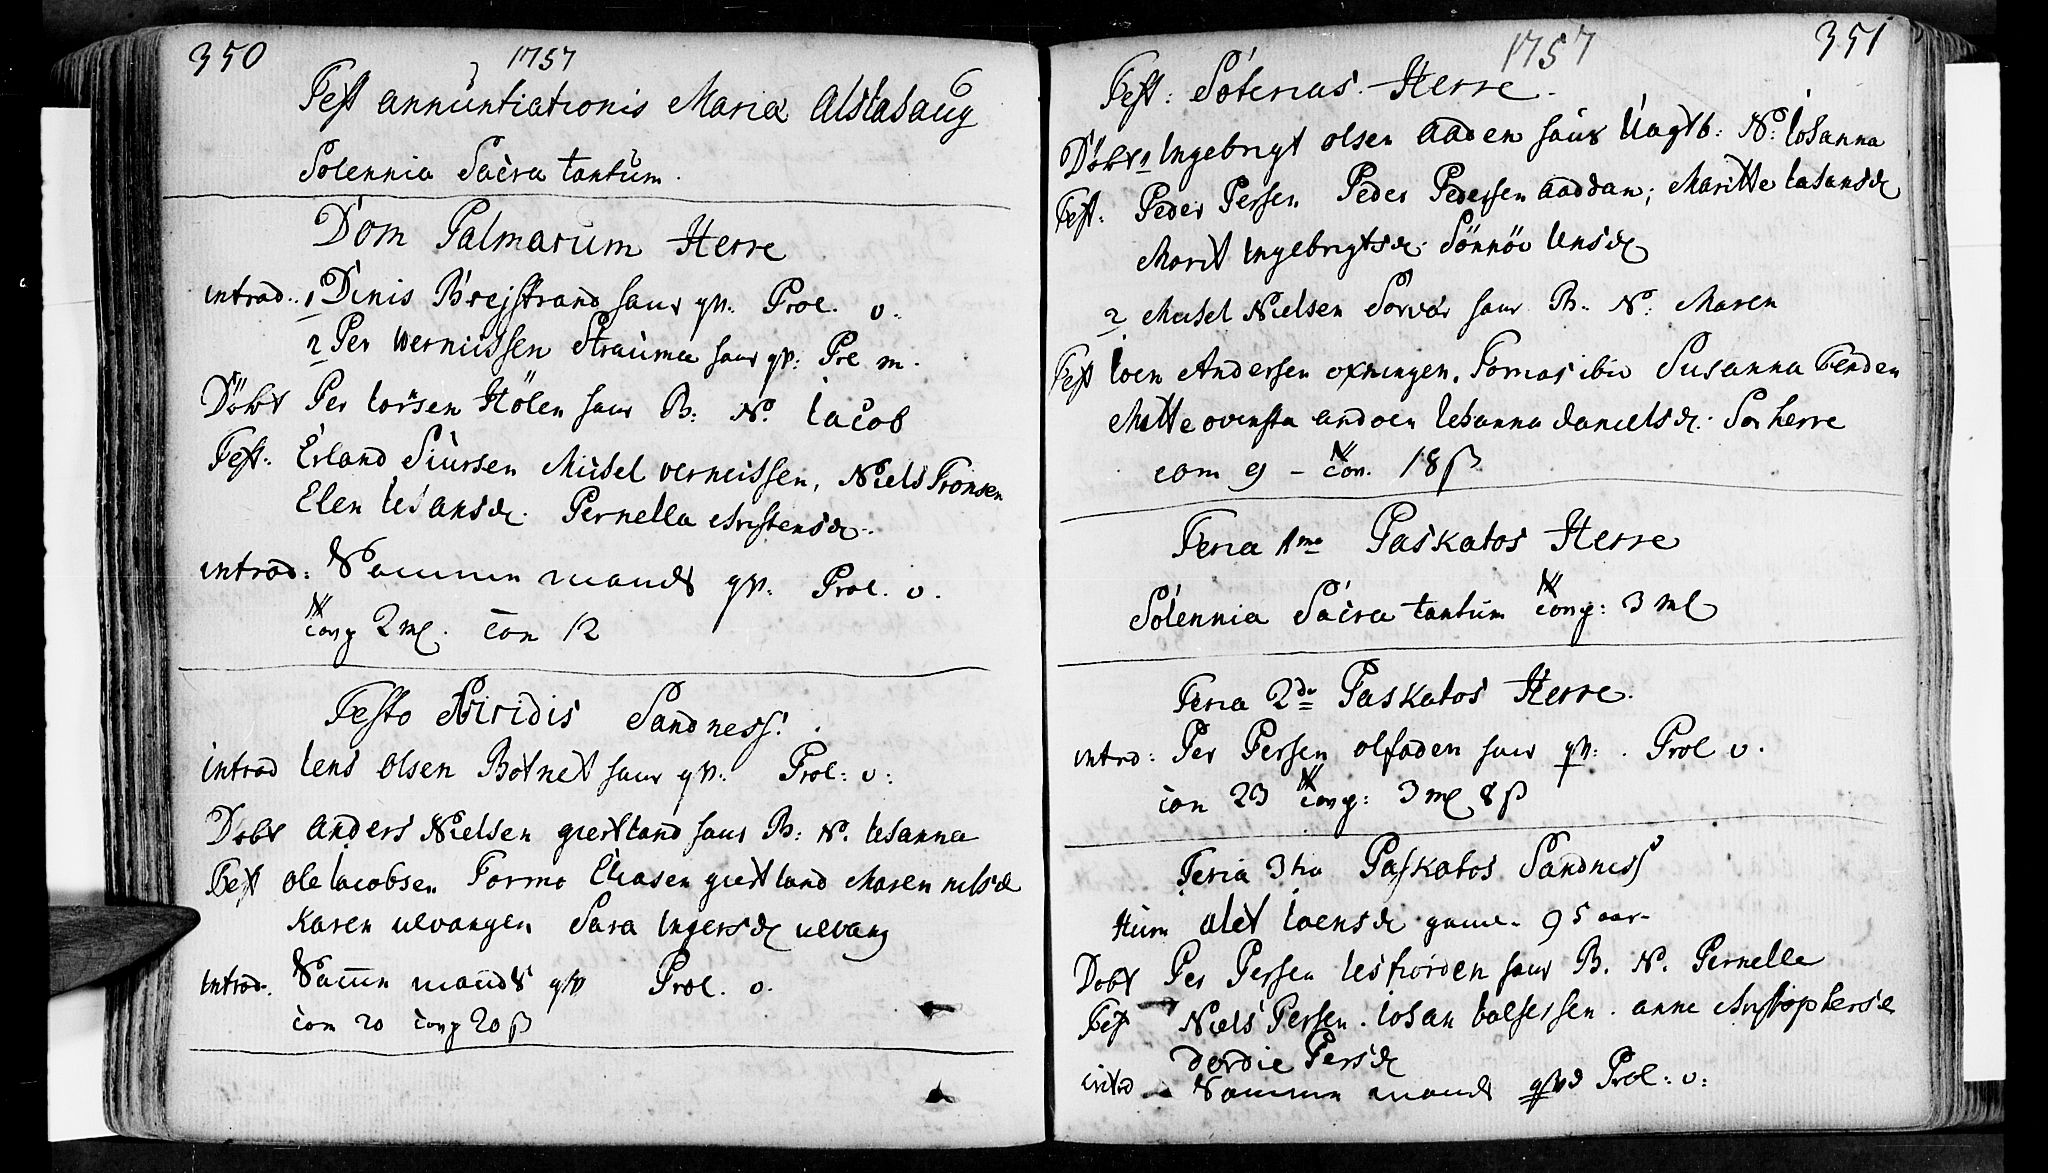 350
1757
Fest annuntiationis Mariæ Alstahaug
Solennia Sacra tantum.
Dom Palmarum Herre
introd.. 1 Dinis Brejstrand haur qv. Prol. v.
2 Per wernissen Strauma haur qv: Prl m.
Döbt Per Larsen Hölen haur B: N. Iacob
Fest: Erland Siursen Mikel vernissen, Niels Tronsen
Elen Iohansd. Pernella Christensd.
introd: Sammen mands qv. Prol. v.
cong 2 ml. com 12
Festo Viridis Sandness.
introd Iens Olsen Botnet haur qv. Prol: v:
Döbt anders Nielsen giertland haur B: N. Iohanna
Fest ole Iacobsen Tormo Eliasen giertland Maren nilsd
Karen ulvangen Sara Ingersd ulvang
introd. Samn mands qv Prol. v.
com 20 cong 20 ß
351
1757
Fest: Soterias. Herre.
Döbt 1 Ingebrigt olsen aaden haur Uægtb: N: Iohanna
Fest: Peder Persen Peder Pedersen aaddan; Maritte Iohansd
Marit Ingebrigtsd. Sönnöv Iensd
2 Mikel Nielsen Sorvær haur B. N: Maren
Fest Ioen Andersen oxningen. Tomas ibid Susanna Fenden
Mette ovensta andoen Iohanna danielsd. Sör herre
com 9 - con. 18 ß
Feria 1ma Paskatos Herre
Solennia Sacra tantum cong: 3 ml
Feria 2da Paskatos Herre.
introd: Per Persen olfoden haur qv: . Prol v.
con 23 cong: 3 ml 8 ß
Feria 3tia Paskatos Sandness
Hum olet Ioensd gaml. 95 aar-
Döbt Per Persen Leifiorden haur B. N. Pernelle
Fest Niels Persen. Iohan balsersen. anne Christophersd
dordie Persd
introd Sammen mands qv Prol: v: